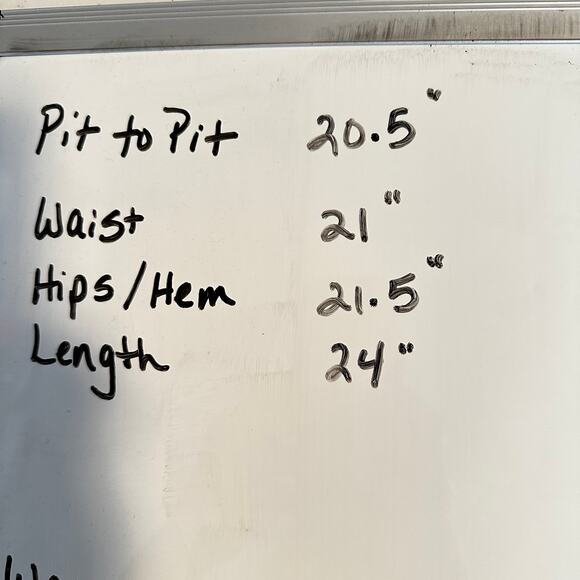 Pit to Pit 20.5"
Waist 21"
Hips/Hem 21.5"
Length 24"